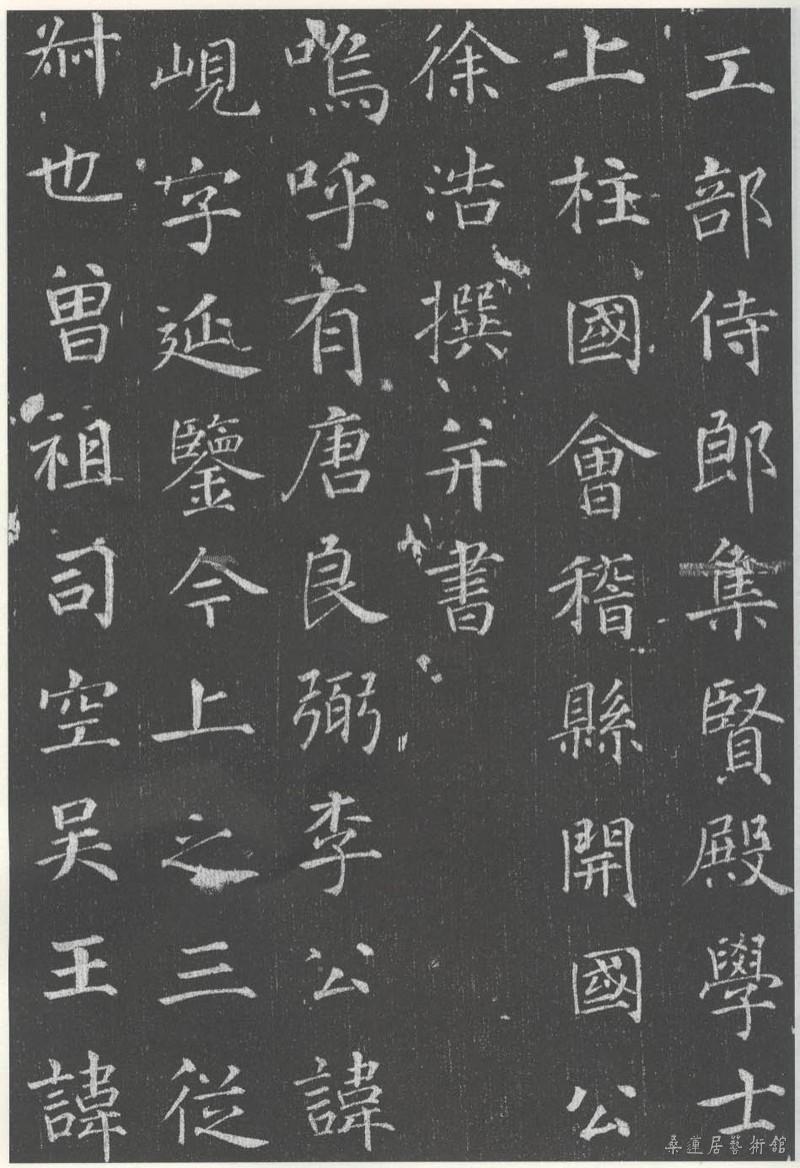 工部侍郎集賢殿學士
上柱國會稽縣開國公
徐浩撰并書
嗚呼有唐良弼李公諱
峴字延鑒今上之三從
叔也曾祖司空吳王諱
桑蓮居藝術館